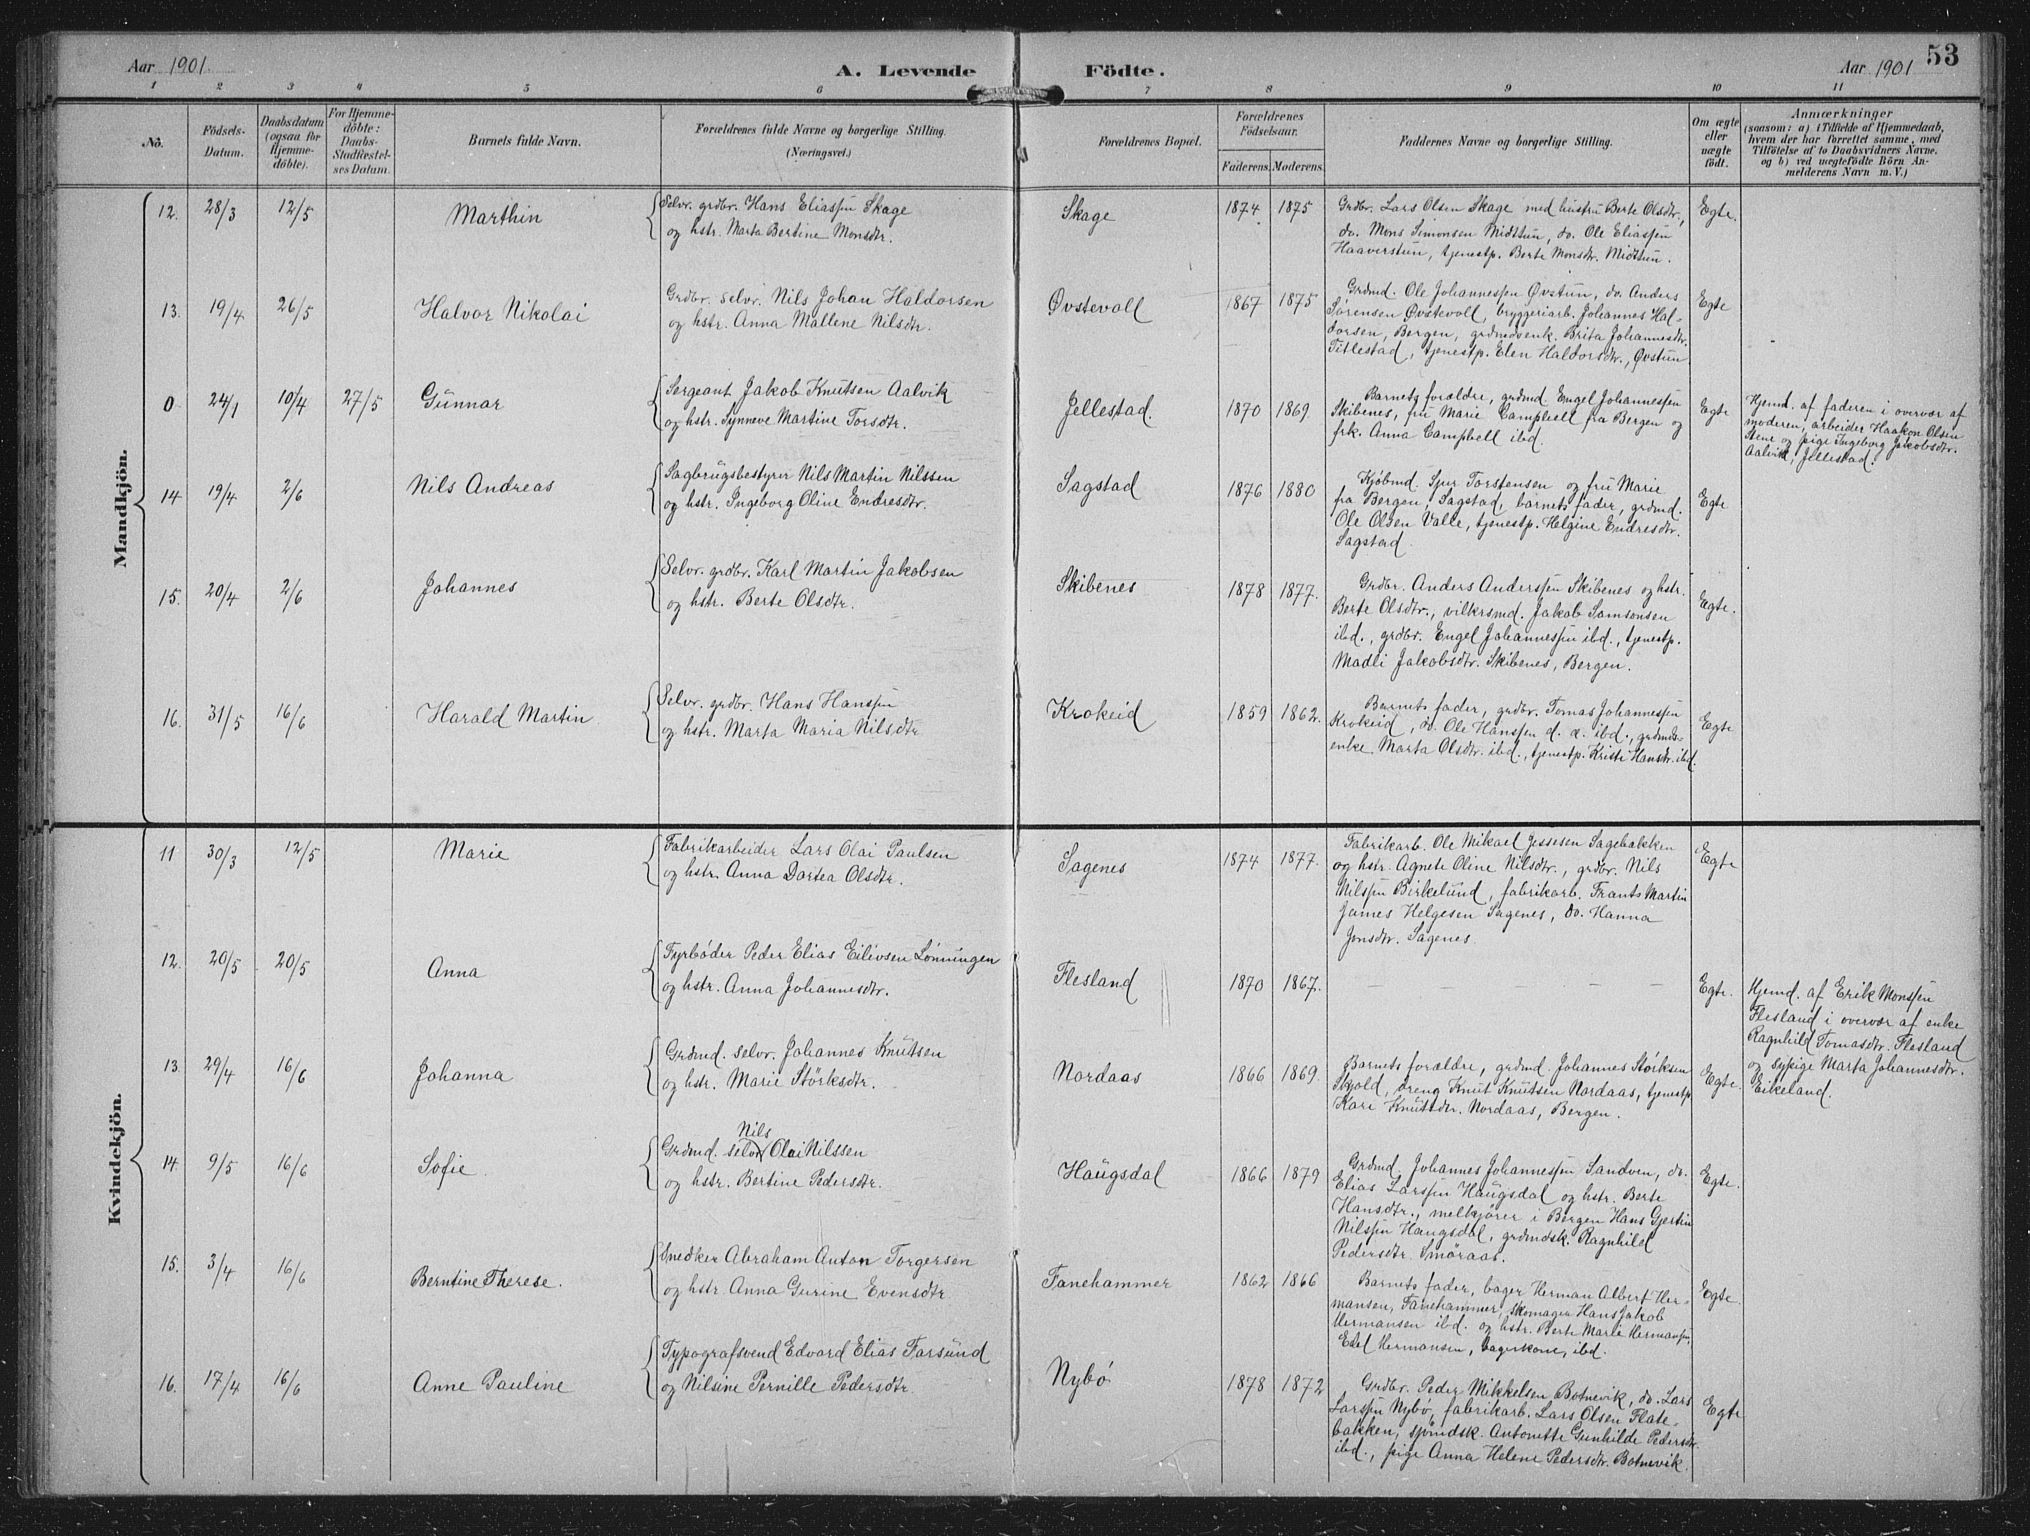 Aar 1901.
A. Levende Födte.
Aar 1901
53
1 2 3 4 5 6 7 8 9 10 11
No.
Födsels-Datum.
Daabsdatum (ogsaa for Hjemmedöbte).
For Hjemmedöbte: Daabs-Stadfæstelses Datum.
Barnets fulde Navn.
Forældrenes fulde Navne og borgerlige Stilling.
(Næringsvei.)
Forældrenes Bopæl.
Forældrenes Födselsaar.
Faderens. Moderens.
Faddernes Navne og borgerlige Stilling.
Om ægte eller uægte födt.
Anmærkninger
(saasom: a) i Tilfælde af Hjemmedaab,
hvem der har forrettet samme, med
Tilföielse af to Daabsvidners Navne.
og b) ved uægtefödte Börn An-
melderens Navn m. V.)
Mandkjön.
12. 28/3 12/5 Marthin
Selv. grdbr. Hans Eliassen Skage
og hstr. Marta Bertine Monsdtr.
Skage 1874 1875
Grdbr. Lars Olsen Skage med hustru Berte Olsdtr.,
do. Mons Simonsen Midttun, do. Ole Eliassen
Haaverstun, tjenestp. Berte Monsdtr. Midttun.
Egte.
13. 19/4 26/5 Halvor Nikolai
Grdbr. selv. Nils Johan Haldorsen
og hstr. Anna Mallene Nilsdtr.
Øvstevoll 1867 1875
Grdmd. Ole Johannessen Øvstun, do. Anders
Sørensen Øvstevoll, bryggeriarb. Johannes Hal-
dorsen, Bergen, grdmdsenk. Brita Johannesdtr.
Titlestad, tjenestp. Elen Haldorsdtr., Øvstun
Egte
0 24/1 10/4 27/5 Gunnar
Sergeant Jakob Knutsen Aalvik
og hstr. Synneve Martine Torsdtr.
Jellestad. 1870 1869
Barnets forældre, grdmd. Engel Johannessen
Skibenes, fru Marie Campbell fra Bergen og
frk. Anna Campbell ibd.
Egte
Hjemd. af faderen i overvær af
moderen, arbeider Haakon Olsen
Stene og pige Ingeborg Jakobsdtr.
Aalvik, Jellestad.
14 19/4 2/6 Nils Andreas
Sagbrugsbestyrer Nils Martin Nilssen
og hstr. Ingeborg Oline Endresdtr.
Sagstad 1876 1880
Kjøbmd. Sjur Torstensen og fru Marie
fra Bergen, Sagstad, barnets fader, grdmd.
Ole Olsen Valle, tjenestp. Helgine Endresdtr.
Sagstad.
Egte
15. 20/4 2/6 Johannes
Selv. grdbr. Karl Martin Jakobsen
og hstr. Berte Olsdtr.
Skibenes 1878 1877.
Grdbr. Anders Anderssen Skibenes og hstr.
Berte Olsdtr., vilkrsmd. Jakob Samsonsen
ibd., grdbr. Engel Johannessen ibd., tjenestp.
Madli Jakobsdtr. Skibenes, Bergen.
Egte.
16. 31/5 16/6 Harald Martin
Selv. grdbr. Hans Hanssen
og hstr. Marta Maria Nilsdtr.
Krokeid 1859 1862.
Barnets fader, grdbr. Tomas Johannessen
Krokeid, do. Ole Hanssen d. æ. ibd., grdmds-
enke Marta Olsdtr. ibd., tjenestp. Kristi Hansdtr. ibd.
Egte
Kvindekjön.
11 30/3 12/5 Marie
Fabrikarbeider Lars Olai Paulsen
og hstr. Anna Dortea Olsdtr.
Sagenes 1874 1877.
Fabrikarb. Ole Mikael Jessesen Sagebakken
og hstr. Agnete Oline Nilsdtr., grdbr. Nils
Nilssen Birkelund, fabrikarb. Frants Martin
James Helgesen Sagenes, do. Hanna
Jensdtr. Sagenes.
Egte
12. 20/5 20/5 Anna
Fyrbøder Peder Elias Eilivsen Lønningen
og hstr. Anna Johannesdtr.
Flesland 1870 1867.
Egte.
Hjemd. af Erik Monssen
Flesland i overvær af enke
Ragnhild Tomasdtr. Flesland
og sypige Marta Johannesdtr.
Eikeland.
13. 29/4 16/6 Johanna
Grdmd. selv. Johannes Knutsen
og hstr. Marie Størksdtr.
Nordaas 1866 1869.
Barnets forældre, grdmd. Johannes Størksen
Skjold, dreng Knut Knutsen Nordaas, tjenestp.
Kari Knutsdtr. Nordaas, Bergen.
Egte.
14. 9/5 16/6 Sofie.
Nils
Grdmd. selv. Olai Nilssen
og hstr. Bertine Pedersdtr.
Haugsdal 1866 1879
Grdmd. Johannes Johannessen Sandven, do.
Elias Larssen Haugsdal og hstr. Berte
Hansdtr., melkjører i Bergen Hans Gjertin
Nilssen Haugsdal, grdmdsk. Ragnhild
Pedersdtr. Smøraas.
Egte.
15. 3/4 16/6 Berntine Therese.
Snedker Abraham Anton Torgersen
og hstr. Anna Gurine Evensdtr.
Fanehammer 1862 1866
Barnets fader, bager Herman Albert Her-
mansen, Fanehammer, skomager Hans Jakob
Hermansen ibd. og hstr. Berte Marie Hermansen,
Edel Hermansen, bagerkone, ibd.
Egte.
16. 17/4 16/6 Anne Pauline
Typografsvend Edvard Elias Farsund
og Nilsine Pernille Pedersdtr.
Nybø 1878 1872
Grdbr. Peder Mikkelsen Botnevik, do. Lars
Larssen Nybø, fabrikarb. Lars Olsen Flate-
bakken, sjømdsk. Antonette Gunhilde Pedersdtr.
ibd., pige Anna Helene Pedersdtr. Botnevik.
Egte